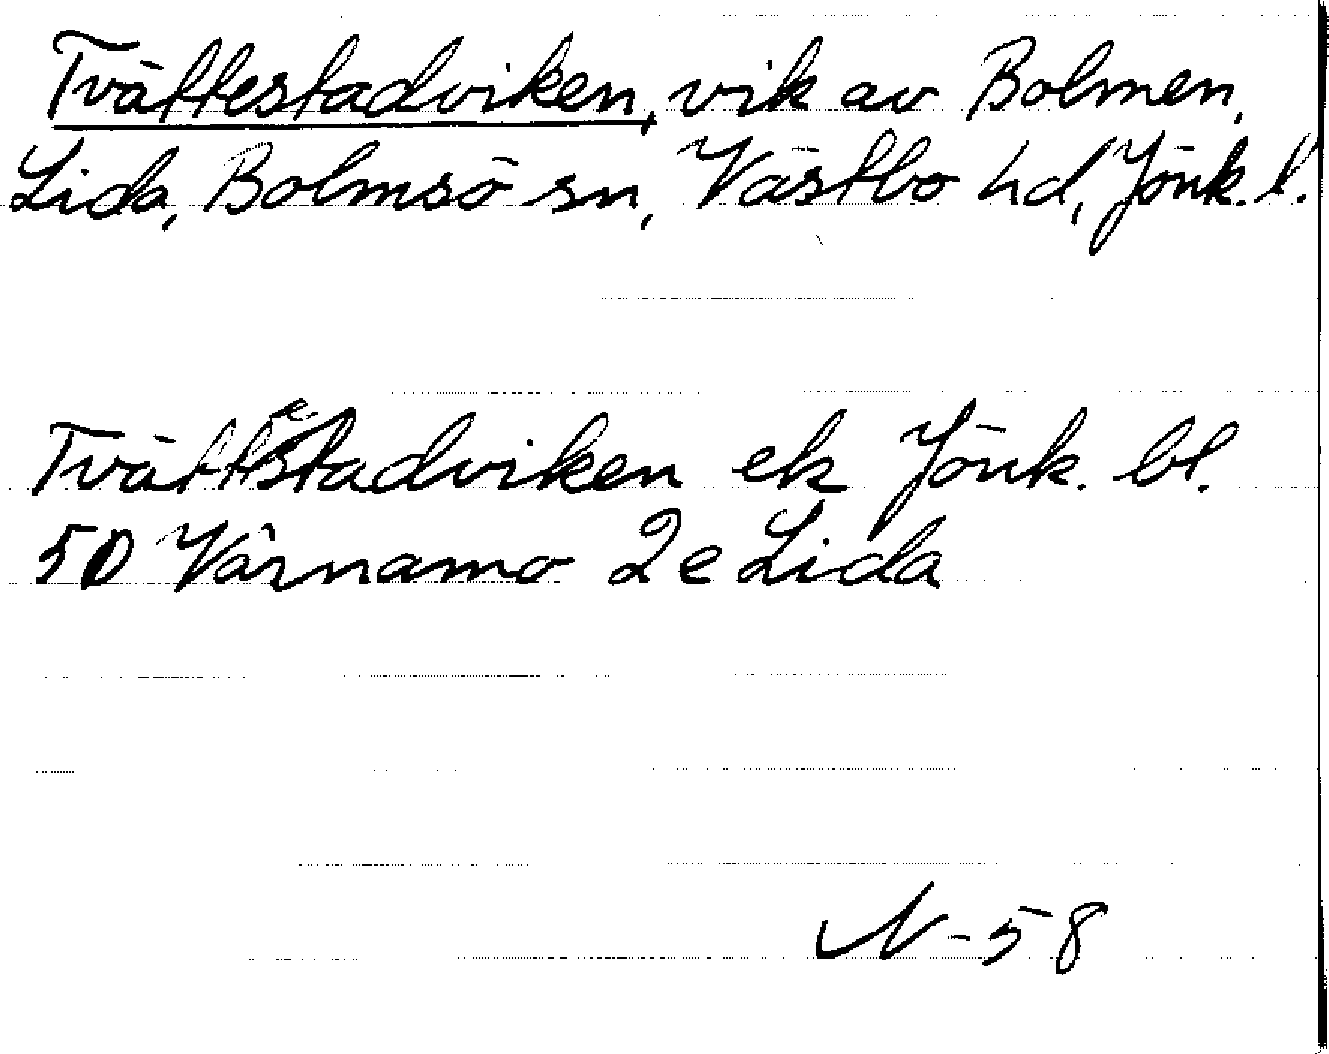 Tvättestadviken, vik av Bolmen,
Lida, Bolmsö sn, Västbo hd, Jönk. l.
Tvättestadviken ek Jönk. bl.
5D Värnamo 2e Lida
N-58